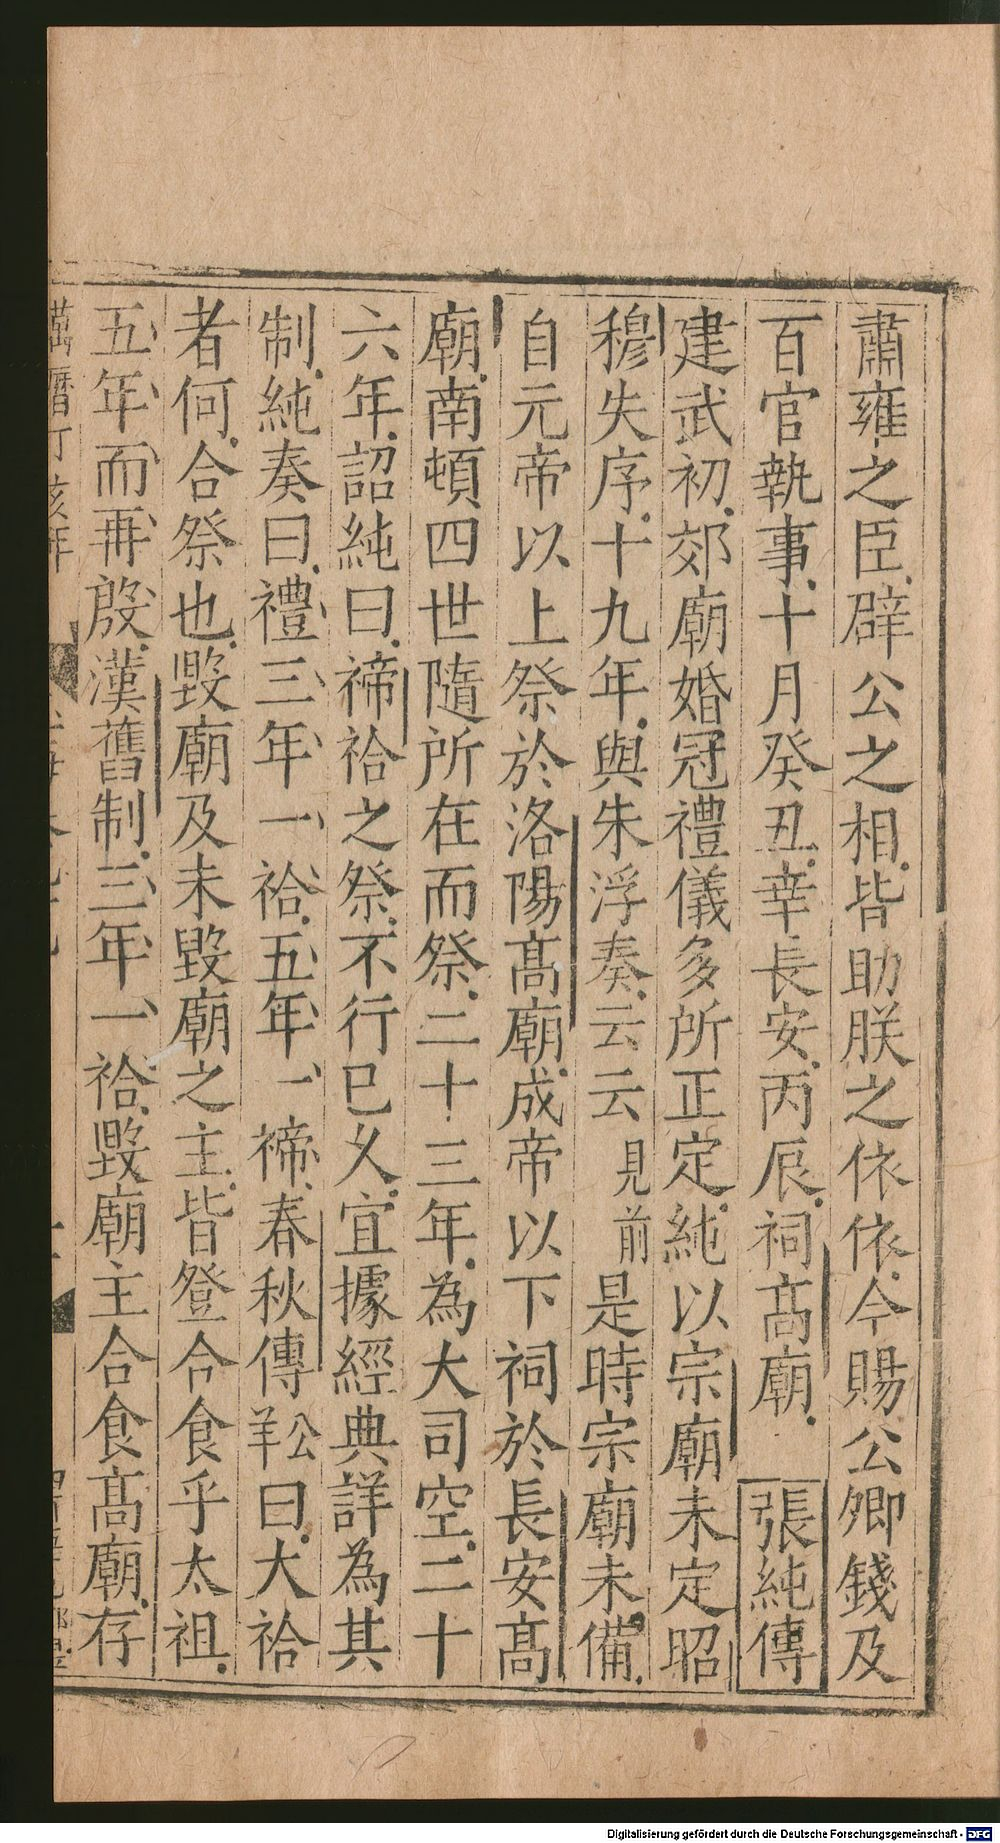 肅雍之臣辟公之相皆助朕之依依今賜公卿錢及
百官執事十月癸丑幸長安丙辰祠髙廟 張純傳
建武初郊廟婚冠禮儀多所正定純以宗廟未定昭
穆失序十九年與朱浮奏云云見前是時宗廟未備
自元帝以上祭於洛陽髙廟成帝以下祠於長安髙
廟南頓四世隨所在而祭二十三年為大司空二十
六年詔純曰禘祫之祭不行已久宜據經典詳為其
制純奏曰禮三年一祫五年一禘春秋傳公羊曰大祫
者何合祭也毀廟及未毀廟之主皆登合食乎太祖
五年而再殷漢舊制三年一祫毀廟主合食髙廟存
萬曆丁亥年
Digitalisierung gefördert durch die Deutsche Forschungsgemeinschaft - DFG